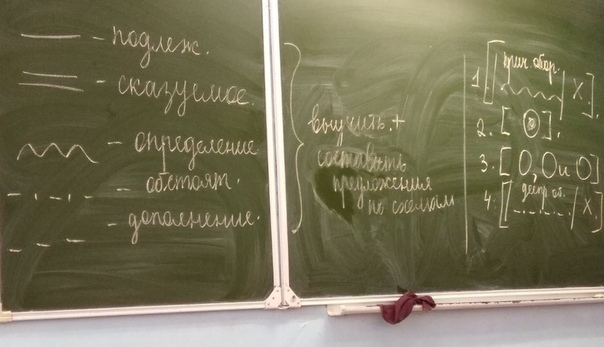 — подлеж.
— сказуемое.
— определение
— обстоят.
— дополнение.
выучить +
составить
предложения
по схемам
1. [ прич. обор. / X ].
2. [ В ].
3. [ O, O и O ]
4. [ деепр. об. / X ].